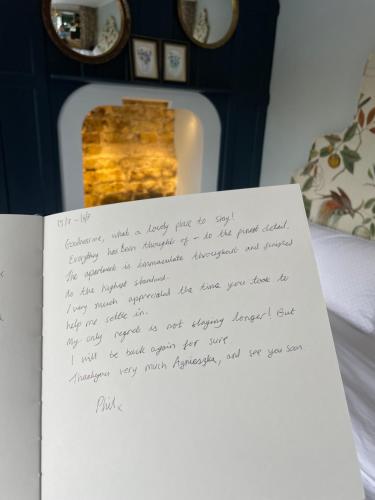 Goodness me, what a lovely place to stay!
Everything has been thought of - to the finest detail.
The apartment is immaculate throughout and finished
to the highest standard.
I very much appreciated the time you took to
help me settle in.
My only regret is not staying longer! But
I will be back again for sure
Thankyou very much Agnieszka, and see you soon
Phil x